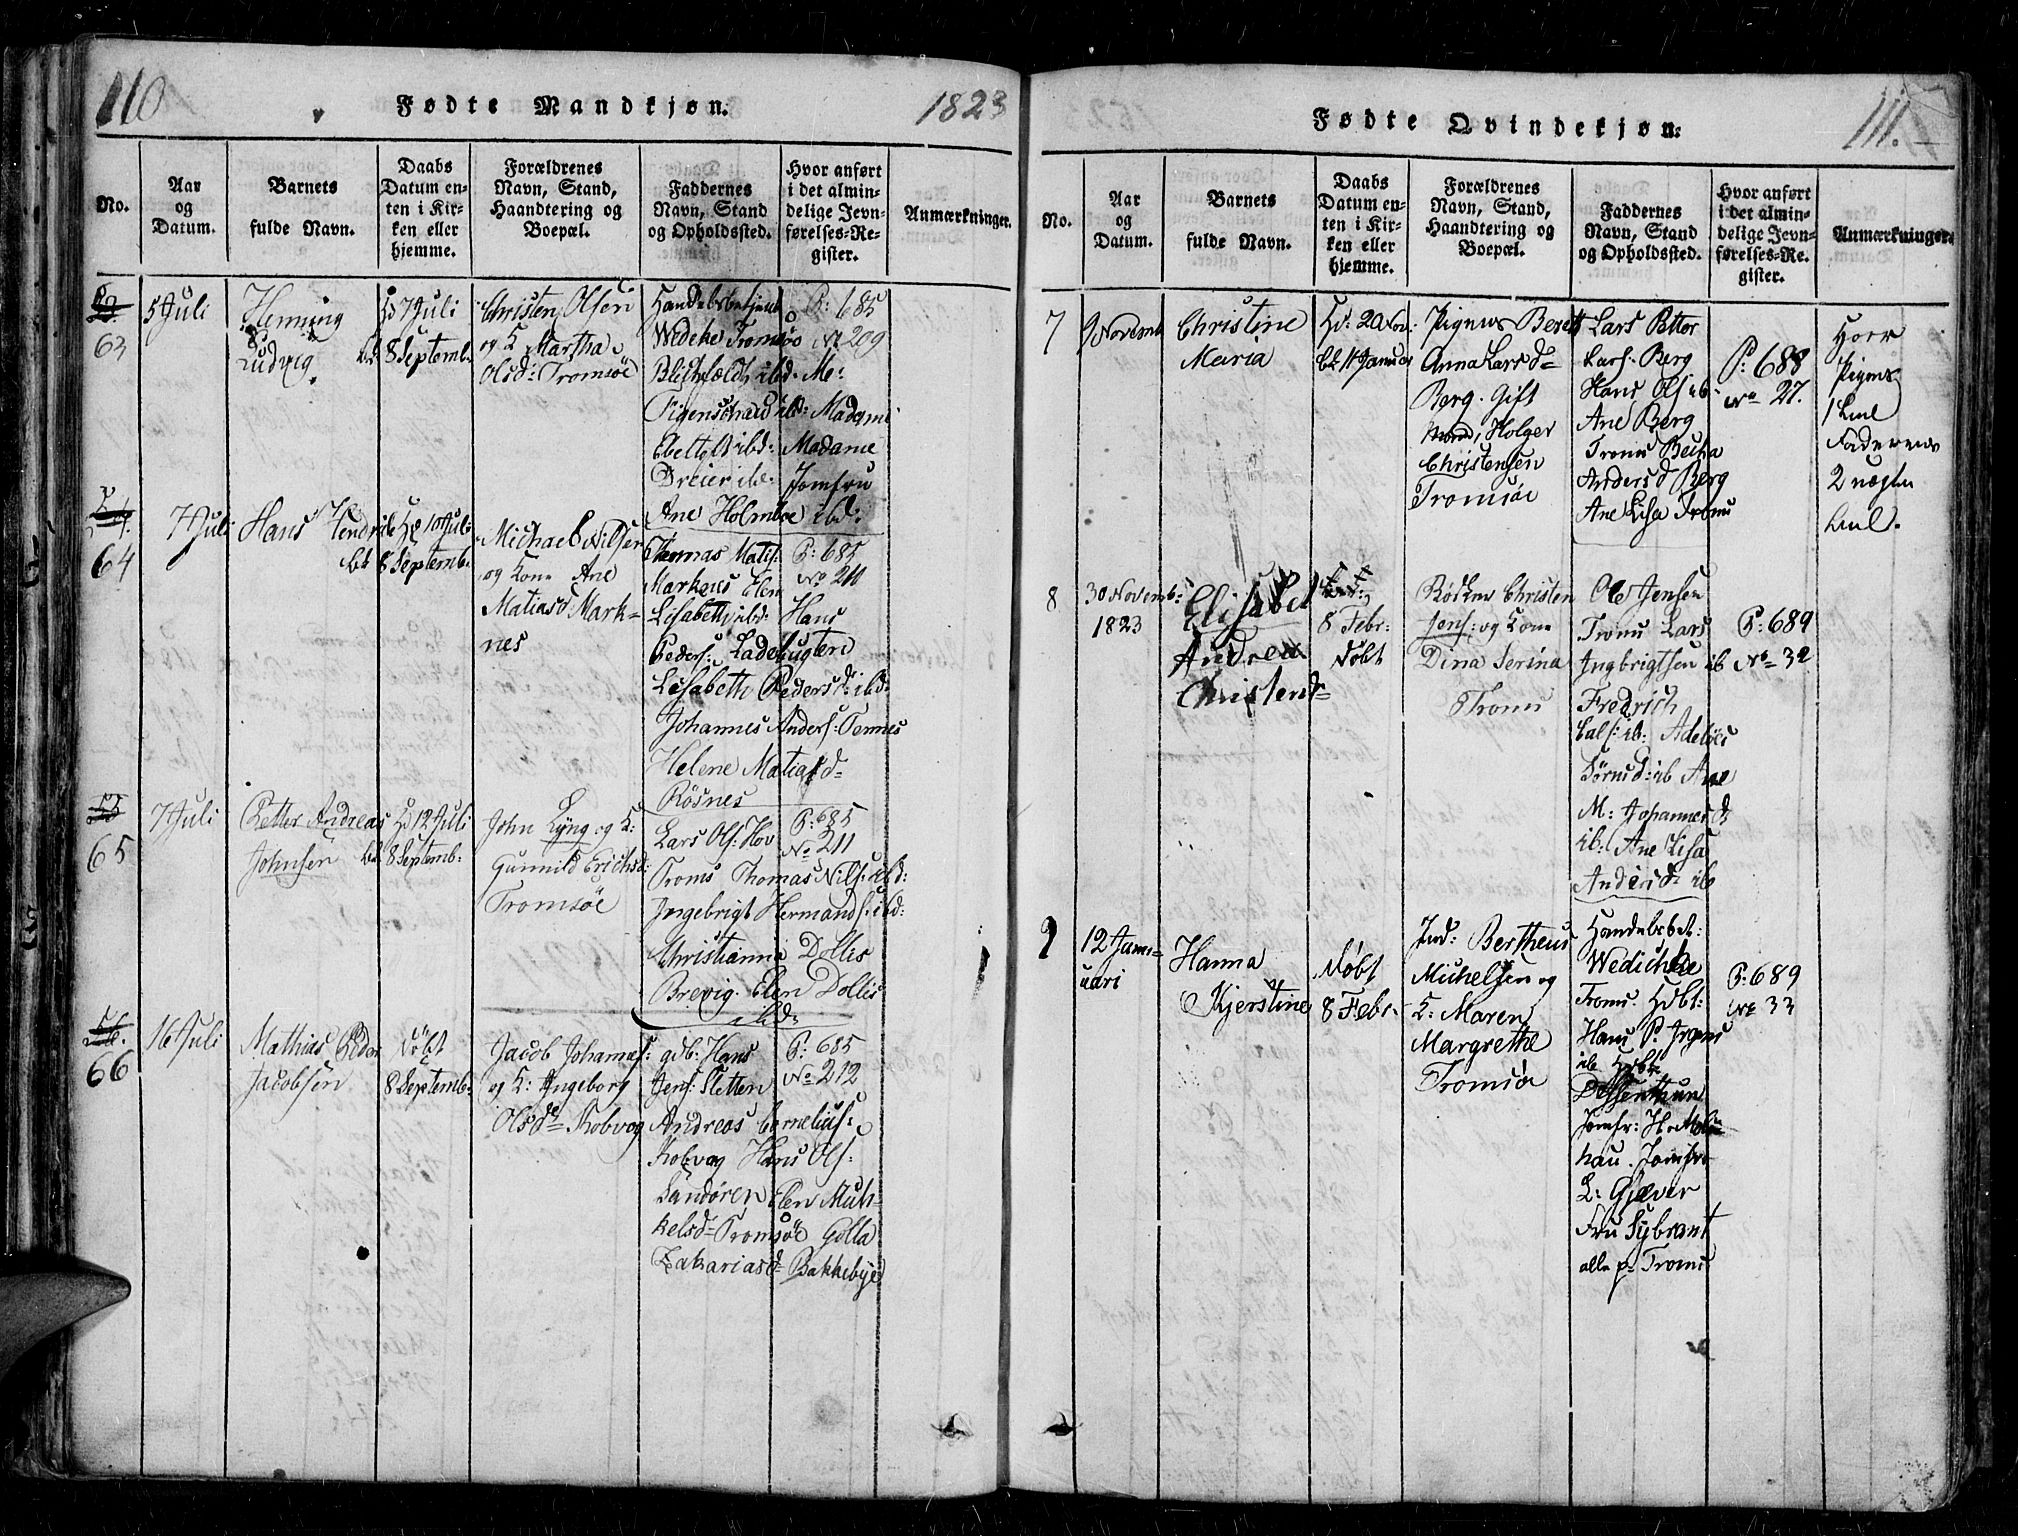 110
Fødte Mandkjøn.
1823
No.
Aar
og
Datum.
Barnets
fulde Navn.
Daabs
Datum en-
ten i Kir-
ken eller
hjemme.
Forældrenes
Navn, Stand,
Haandtering og
Boepæl.
Faddernes
Navn, Stand
og Opholdssted.
Hvor anført
i det almin-
delige Jevn-
førelses-Re-
gister.
Anmærkninger.
63
5 Juli
Henning
Ludvig
Hd 7 Juli
bk 8 Septemb:
Christen Olsen
og K Martha
Olsd: Tromsöe
Handelsbetjent
Wedeke Tromsöe
Blichfeldt ibd. M:
Figenschaud ib: Madame
Ebeltoft ibd: Madame
Dreier ibd: Jomfru
Ane Holmboe ibd:
P: 685
No 209
64
7 Juli
Hans Hendrik
Hd 10 Juli
bk 8 Septemb:
Michael Nilsen
og Kone Ane
Matiasd Mark-
nes
Thomas Matis:
Marknes Elen
Lisabeth ibd: Hans
Peders: Ladebugten
Lisabeth Pedersd: ibd:
Johannes Anders: Tennes
Helene Matiasd=
Rösnes
P: 685
No 210
65
7 Juli
Petter Andreas
Johnsen
Hd 12 Juli
bk 8 Septemb:
John Lÿng og K:
Gunnild Erichsd:
Tromsöe
Lars Ols: Hov
Troms Thomas Nils: ibd:
Ingebrigt Hermands: ibd:
Christianna Dollis
Brevig. Elen Dollis
ibd=
P: 685
No 211
66
16 Juli
Mathias Peder
Jacobsen
Döbt
8 Septemb:
Jacob Johanes:
og K: Ingeborg
Olsd= Kobvog
gdb: Hans
Jens: Sletten
Andreas Cornelius:
Kobvog Hans Ols:
Sandören Elen Mich-
kelsd= Tromsöe Golla
Zakariasd= Bakkebye
P: 685
No 212
Fødte Qvindekjøn:
111.
No.
Aar
og
Datum.
Barnets
fulde Navn.
Daabs
Datum en-
ten i Kir-
ken eller
hjemme.
Forældrenes
Navn, Stand,
Haandtering og
Boepæl.
Faddernes
Navn, Stand
og Opholdssted.
Hvor anført
i det almin-
delige Jevn-
førelses-Re-
gister.
Anmærkninger.
7
9 Novemb
Christine
Maria
Hd: 20 Nov:
bk 11 Januar
Pigens Berett
Anna Larsd=
Berg. Gift
Mand, Holger
Christensen
Tromsöe
Lars Petter
Lars. Berg
Hans Ols ib
Ane Berg
Troms Becha
Andersd Berg
Ane Lisa Troms
P: 688
No 27.
Hoer
Pigens
Faderens
2 
8
30 Novemb:
1823
Elisabet
Andrea
Christensd=
8 Febr:
Döbt
Christen
Jens: og Kone
Dina Serina
Troms
Ole Jensen
Troms Lars
Ingbrigtsen ib
Fredrich
ib: Adelöes
Sörensd: ib Ane
M: Johannesd:
ib: Ane Lisa
Andersd= ib
P: 689
No= 32
9
12 Janu-
uari
Hanna
Kjerstine
Döbt
8 Febr.
Ind: Bertheus
Michelsen og
K: Maren
Margrethe
Tromsöe
Handelsbet:
Wedichke
Troms. Hdbt:
Hans P. 
ib Hdbt:
Jomfr: H. 
hau. Jomfru
L: Gjæver
Fru Sybrant
alle p= Troms
P: 689
No 33